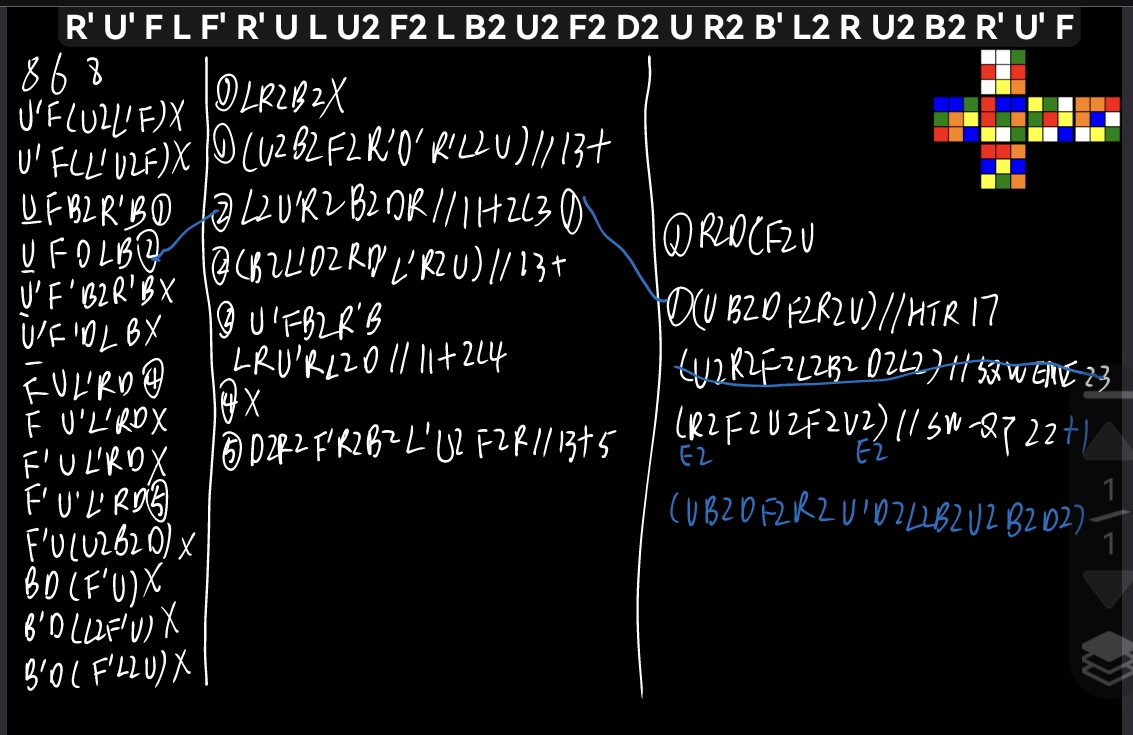 R' U' F L F' R' U L U2 F2 L B2 U2 F2 D2 U R2 B' L2 R U2 B2 R' U' F
8 6 8
U'F(U2L'F)X
U'F(L'U2F)X
UFB2R'B①
UFDLB②
U'F'B2R'BX
U'F'DLBX
FUL'RD④
F U'L'RDX
F'UL'RDX
F'U'L'RD⑤
F'U(U2B2D)X
BD(F'U)X
B'D(L2F'U)X
B'D(F'L2U)X
①LR2B2X
①(U2B2F2R'D'R'L2U)//13+
②L2U'R2B2DR//11+2C3①
②(B2L'D2RD'L'R2U)//13+
③U'FB2R'B
LRU'RL2D//11+2C4
④X
⑤D2R2F'R2B2L'U2F2R//13+5
①(UB2DF2R2U)//HTR 17
(U2R2F2L2B2D2L2)
23
(R2F2U2F2U2)
22+1
E2
E2
(UB2DF2R2U'D2L2B2U2B2D2)
1
1